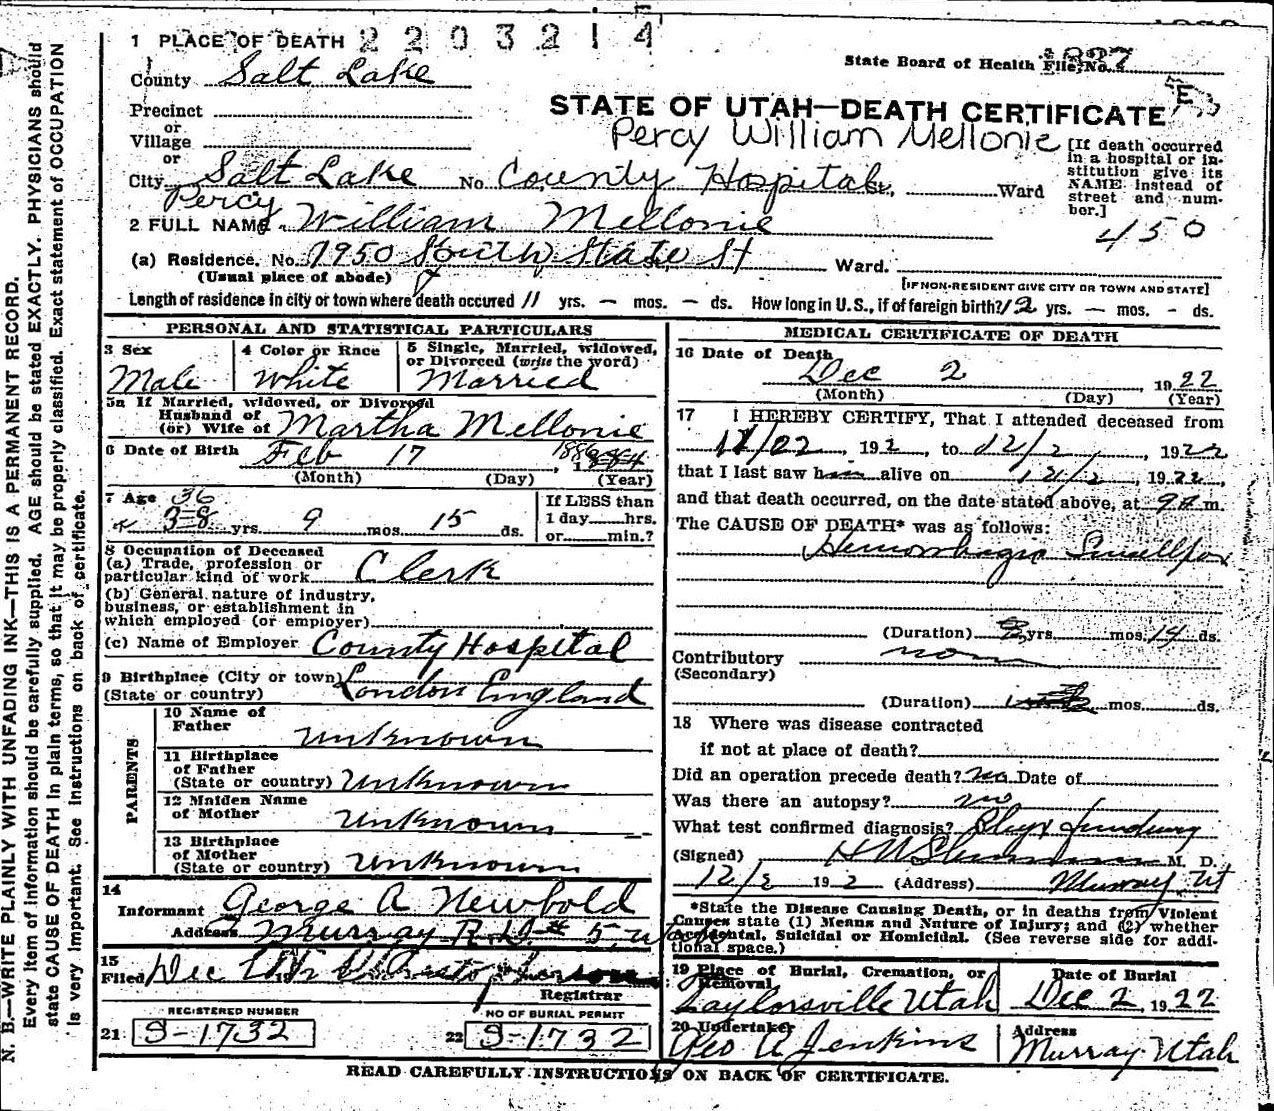 1 PLACE OF DEATH 2203214
County Salt Lake
State Board of Health File No. 1827
Precinct
or
Village
or
City Salt Lake No. County Hospital St., Ward
STATE OF UTAH—DEATH CERTIFICATE
Percy William Mellonie
[If death occurred in a hospital or institution give its NAME instead of street and number.]
450
Percy
2 FULL NAME William Mellonie
(a) Residence. No. 7950 South State St Ward.
(Usual place of abode)
[IF NON-RESIDENT GIVE CITY OR TOWN AND STATE]
Length of residence in city or town where death occured 11 yrs. — mos. — ds. How long in U.S., if of foreign birth? 12 yrs. — mos. - ds.
PERSONAL AND STATISTICAL PARTICULARS
3 Sex
Male
4 Color or Race
White
5 Single, Married, widowed, or Divorced (write the word)
Married
5a If Married, widowed, or Divorced
Husband of
(or) Wife of Martha Mellonie
6 Date of Birth Feb 17, 1886 1884
(Month) (Day) (Year)
7 Age 36
38 yrs. 9 mos. 15 ds.
If LESS than
1 day hrs.
or min.?
8 Occupation of Deceased
(a) Trade, profession or
particular kind of work Clerk
(b) General nature of industry,
business, or establishment in
which employed (or employer)
(c) Name of Employer County Hospital
9 Birthplace (City or town) London England
(State or country)
PARENTS
10 Name of
Father Unknown
11 Birthplace
of Father
(State or country) Unknown
12 Maiden Name
of Mother Unknown
13 Birthplace
of Mother
(State or country) Unknown
14
Informant George A Newbold
Address Murray R.D. # 5
15
Filed Dec
Registrar
REGISTERED NUMBER
21 S-1732
NO OF BURIAL PERMIT
22 S-1732
MEDICAL CERTIFICATE OF DEATH
16 Date of Death
Dec 2, 1922
(Month) (Day) (Year)
17 I HEREBY CERTIFY, That I attended deceased from
192 2, to 12/2, 1922
that I last saw h alive on 12/2, 1922,
and that death occurred, on the date stated above, at 9 m.
The CAUSE OF DEATH* was as follows:
Hemorrhagic Smallpox
(Duration) yrs. mos. 14 ds.
Contributory none
(Secondary)
(Duration) mos. ds.
18 Where was disease contracted
if not at place of death?
Did an operation precede death? no Date of
Was there an autopsy? no
What test confirmed diagnosis?
(Signed) M. D.
12/2 192 2 (Address) Murray, Ut
*State the Disease Causing Death, or in deaths from Violent
Causes state (1) Means and Nature of Injury; and (2) whether
Accidental, Suicidal or Homicidal. (See reverse side for addi-
tional space.)
19 Place of Burial, Cremation, or
Removal
Taylorsville Utah
Date of Burial
Dec 2, 1922
20 Undertaker
Geo A Jenkins
Address
Murray Utah
READ CAREFULLY INSTRUCTIONS ON BACK OF CERTIFICATE.
N. B.—WRITE PLAINLY WITH UNFADING INK—THIS IS A PERMANENT RECORD.
Every item of information should be carefully supplied. AGE should be stated EXACTLY. PHYSICIANS should
state CAUSE OF DEATH in plain terms, so that it may be properly classified. Exact statement of OCCUPATION
is very important. See instructions on back of certificate.